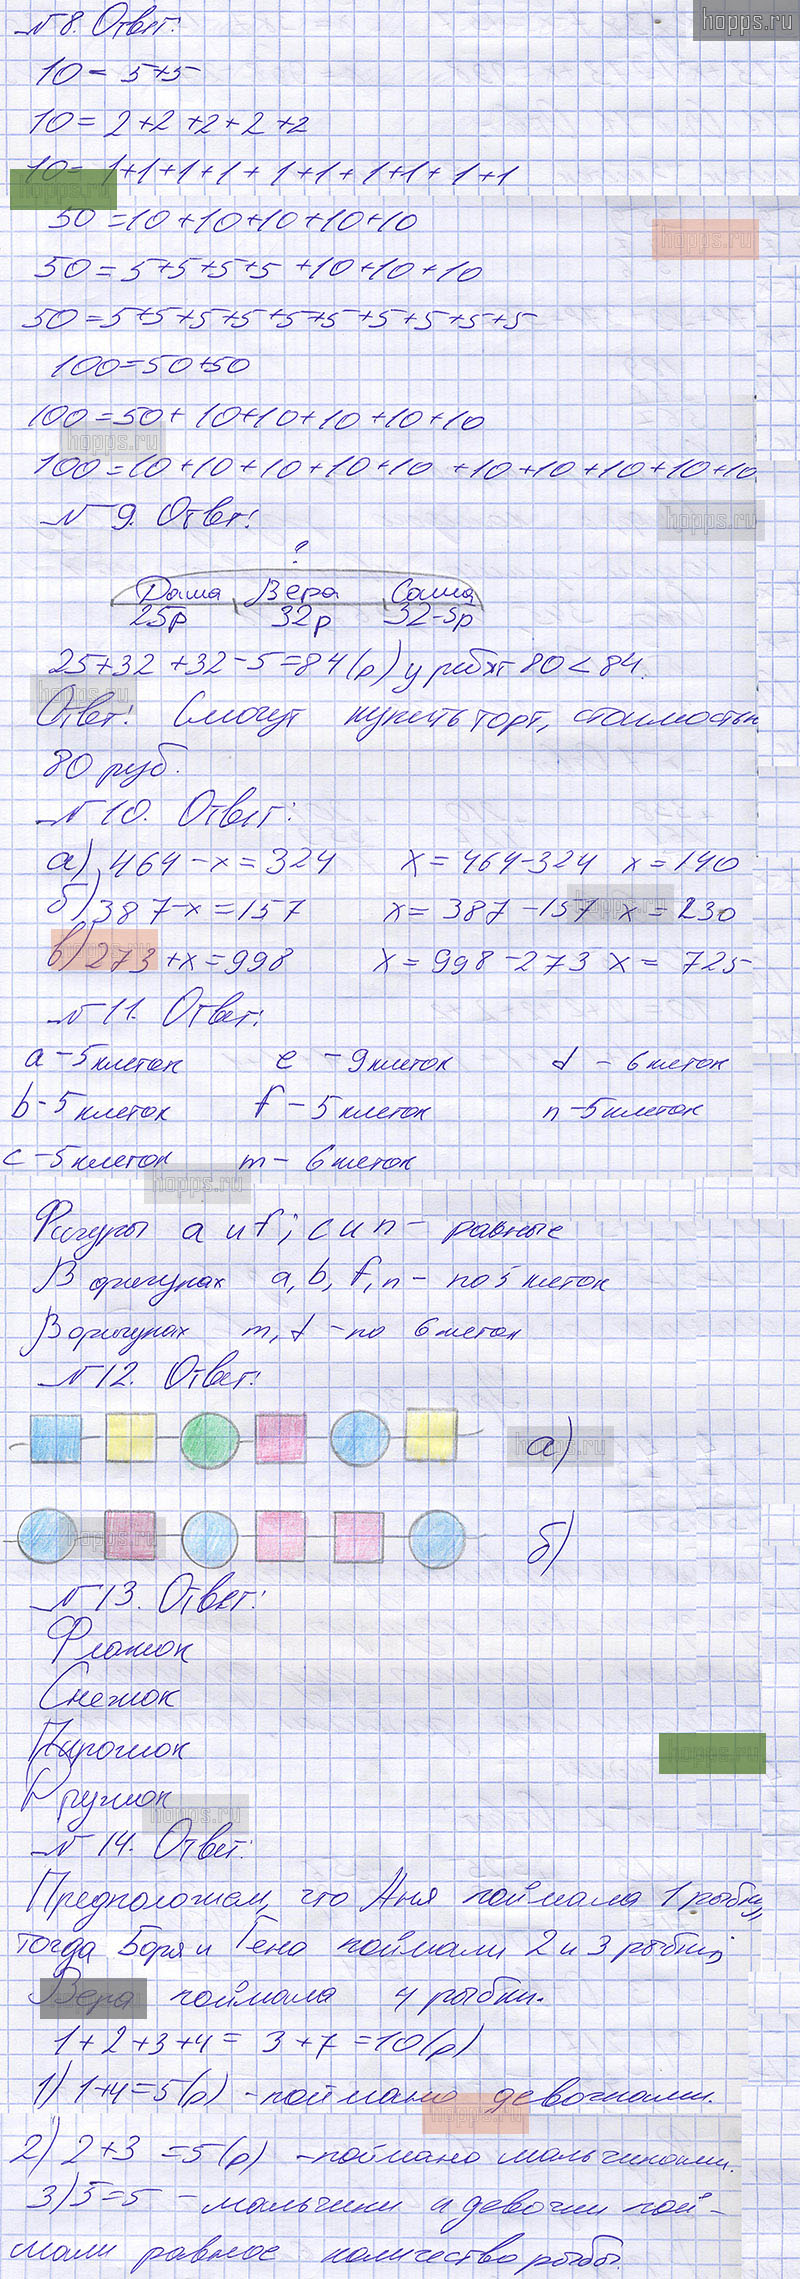 №8. Ответ:
hopps.ru
10 = 5+5
10 = 2+2+2+2+2
10 = 1+1+1+1+1+1+1+1+1+1
hopps.ru
50 = 10+10+10+10+10
hopps.ru
50 = 5+5+5+5+10+10+10
50 = 5+5+5+5+5+5+5+5+5+5
100 = 50+50
100 = 50+10+10+10+10+10
hopps.ru
100 = 10+10+10+10+10+10+10+10+10+10
№9. Ответ:
hopps.ru
?
Даша Вера Саша
25р 32р 32-5р
25+32+32-5=84(р) у ребят 80<84.
hopps.ru
Ответ: Смогут купить торт, стоимостью
80 руб.
№10. Ответ:
а) 464-x=324 x=464-324 x=140
б) 387-x=157 x=387-157 x=230
hopps.ru
в) 273+x=998 x=998-273 x=725
hopps.ru
№11. Ответ:
a-5 клеток e-9 клеток d-6 клеток
b-5 клеток f-5 клеток n-5 клеток
c-5 клеток m-6 клеток
hopps.ru
Фигуры a и f; c и n - равные
В фигурах a, b, f, n - по 5 клеток
В фигурах m, d - по 6 клеток
№12. Ответ:
а)
hopps.ru
б)
hopps.ru
№13. Ответ:
Флажок
Снежок
Пирожок
hopps.ru
Дружок
hopps.ru
№14. Ответ:
Предположем, что Аня поймала 1 рыбку,
тогда Боря и Гена поймали 2 и 3 рыбки,
Вера поймала 4 рыбки.
1+2+3+4= 3+7=10(р)
1) 1+4=5(р) - поймано девочками.
hopps.ru
2) 2+3=5(р) - поймано мальчиками.
3) 5=5 - мальчики и девочки пой-
мали равное количество рыбы.